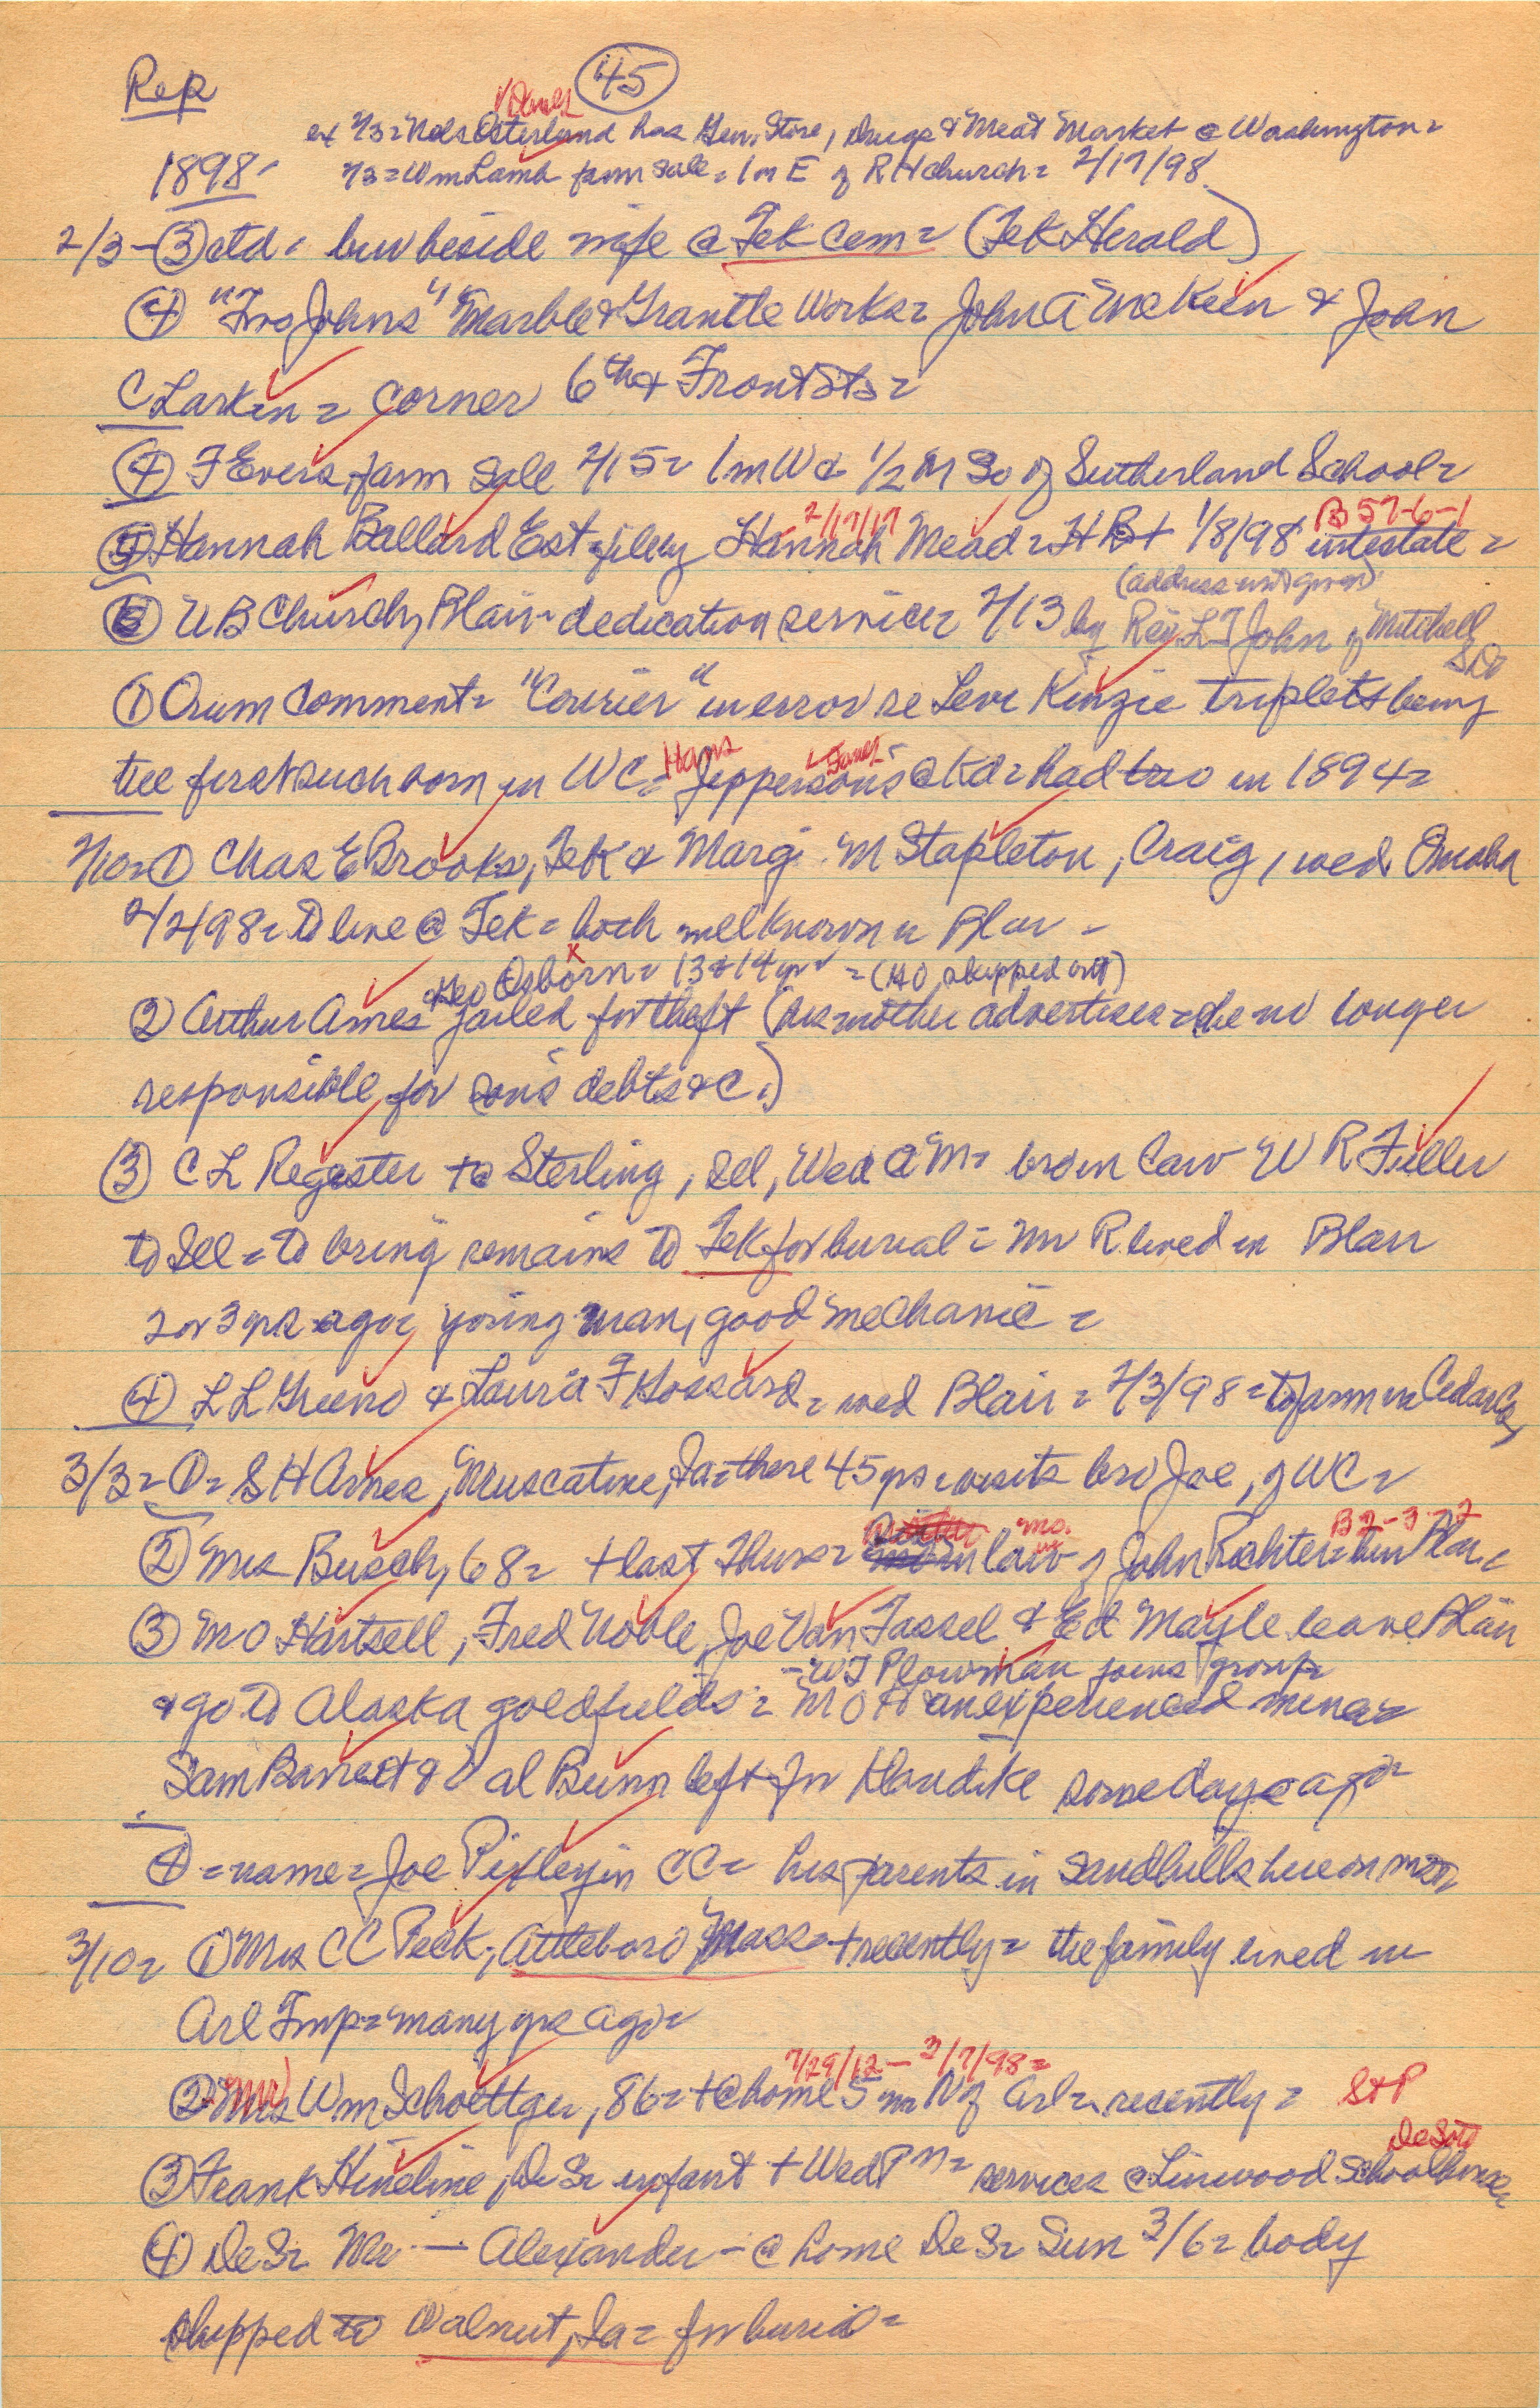 Rep
45
ex 2/3 = Nels Osterlund has Gen. Store, Drugs & Meat Market @ Washington =
1898 -
2/3 = Wm Lamb farm sale = 1 m E of RH church = 2/17/98
2/3 - ③ ctd = bur beside wife @ Tek Cem = (Tek Herald)
④ "Two Johns" Marble & Granite Works = John A McKeen & John
C Larkin = corner 6th & Front Sts =
④ F Evers, farm sale 2/15 = 1 m W & 1/2 m So of Sutherland School =
2/17/17 B 57-6-1
⑤ Hannah Ballard Est = filing Hannah Mead = HB + 1/8/98 intestate =
(address not given)
⑥ UB Church, Blair - dedication services 2/13 by Rev LT John of Mitchell
SD
① Orum comment = "Courier" in error re Levi Kinzie triplets being
Hans
the first such born in WC = Jeppersons @ Kd = had trio in 1894 =
2/10 = ① Chas E Brooks, Tek & Margi M Stapleton, Craig, wed Omaha
2/2/98 = to live @ Tek = both well known in Blair -
& Geo Osborn = 13 & 14 yr = (HO skipped out)
② Arthur Ames jailed for theft (his mother advertises = she no longer
responsible for son's debts &c.)
③ C L Register to Sterling, Ill, Wed AM = bro in law W R Fuller
to Ill = to bring remains to Tek for burial = Mr R lived in Blair
2 or 3 yrs ago, young man, good mechanic =
④ L L Greeno & Laura F Gossard = wed Blair = 2/3/98 = to farm in Cedar Co,
3/3 = ① = S H Arnes, Muscatine, Ia = there 45 yrs = visits bro Joe, of WC =
mo. B 2-3-22
② Mrs Busch, 68 = + last Thurs = in law of John Richter = bur Blair =
③ M O Hartsell, Fred Noble, Joe Van Tassel & Ed Mayle leave Blair
- WJ Plowman joins group =
& go to Alaska goldfields = M O H an experienced miner =
Sam Barrett & Al Bunn left for Klondike some days ago =
④ = name = Joe Pixley in CC = his parents in sandhills
3/10 = ① Mrs CC Peck, Attleboro Mass = + recently = the family lived in
Arl Twp = many yrs ago =
7/29/12 - 3/7/98 =
② Mrs Wm Schoettger, 86 = + @ home 5 m N of Arl = recently = S+P
DeSoto
③ Frank Hineline, DeS = infant + Wed PM = services @ Linwood Schoolhouse
④ DeS = Mr — Alexander - @ home DeS = Sun 3/6 = body
shipped to Walnut, Ia = for burial =